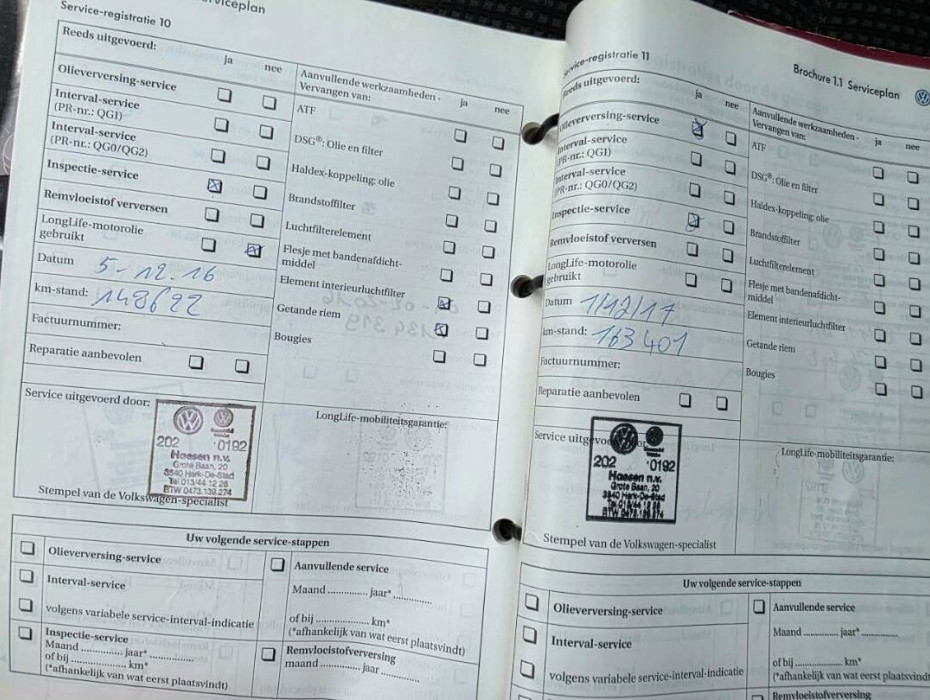 Serviceplan
Service-registratie 10
Reeds uitgevoerd:
ja nee
Olieverversing-service
Interval-service
(PR-nr.: QG1)
Interval-service
(PR-nr.: QG0/QG2)
Inspectie-service
Remvloeistof verversen
LongLife-motorolie
gebruikt
Datum 5-12.16
km-stand: 148622
Factuurnummer:
Reparatie aanbevolen
Aanvullende werkzaamheden -
Vervangen van:
ja nee
ATF
DSG®: Olie en filter
Haldex-koppeling: olie
Brandstoffilter
Luchtfilterelement
Flesje met bandenafdicht-
middel
Element interieurluchtfilter
Getande riem
Bougies
Service uitgevoerd door:
202 0192
Haesen n.v.
Grote Baan, 20
3540 Herk-De-Stad
Tel.013/44 12 28
BTW 0473.139.274
Stempel van de Volkswagen-specialist
LongLife-mobiliteitsgarantie:
Uw volgende service-stappen
Olieverversing-service
Interval-service
volgens variabele service-interval-indicatie
Inspectie-service
Maand ............. jaar* ..............
of bij ............... km*
(*afhankelijk van wat eerst plaatsvindt)
Aanvullende service
Maand ............. jaar* .............
of bij ............... km*
(*afhankelijk van wat eerst plaatsvindt)
Remvloeistofverversing
maand ............ jaar .............
Service-registratie 11
Brochure 1.1 Serviceplan
Reeds uitgevoerd:
ja nee
Olieverversing-service
Interval-service
(PR-nr.: QG1)
Interval-service
(PR-nr.: QG0/QG2)
Inspectie-service
Remvloeistof verversen
LongLife-motorolie
gebruikt
Datum 1/12/17
km-stand: 163401
Factuurnummer:
Reparatie aanbevolen
Aanvullende werkzaamheden -
Vervangen van:
ja nee
ATF
DSG®: Olie en filter
Haldex-koppeling: olie
Brandstoffilter
Luchtfilterelement
Flesje met bandenafdicht-
middel
Element interieurluchtfilter
Getande riem
Bougies
Service uitgevoerd door:
202 0192
Haesen n.v.
Grote Baan, 20
3540 Herk-De-Stad
Tel.013/44 12 28
BTW 0473.139.274
Stempel van de Volkswagen-specialist
LongLife-mobiliteitsgarantie:
Uw volgende service-stappen
Olieverversing-service
Interval-service
volgens variabele service-interval-indicatie
Aanvullende service
Maand ............ jaar* .............
of bij ............ km*
(*afhankelijk van wat eerst plaatsvindt)
Remvloeistofverversing